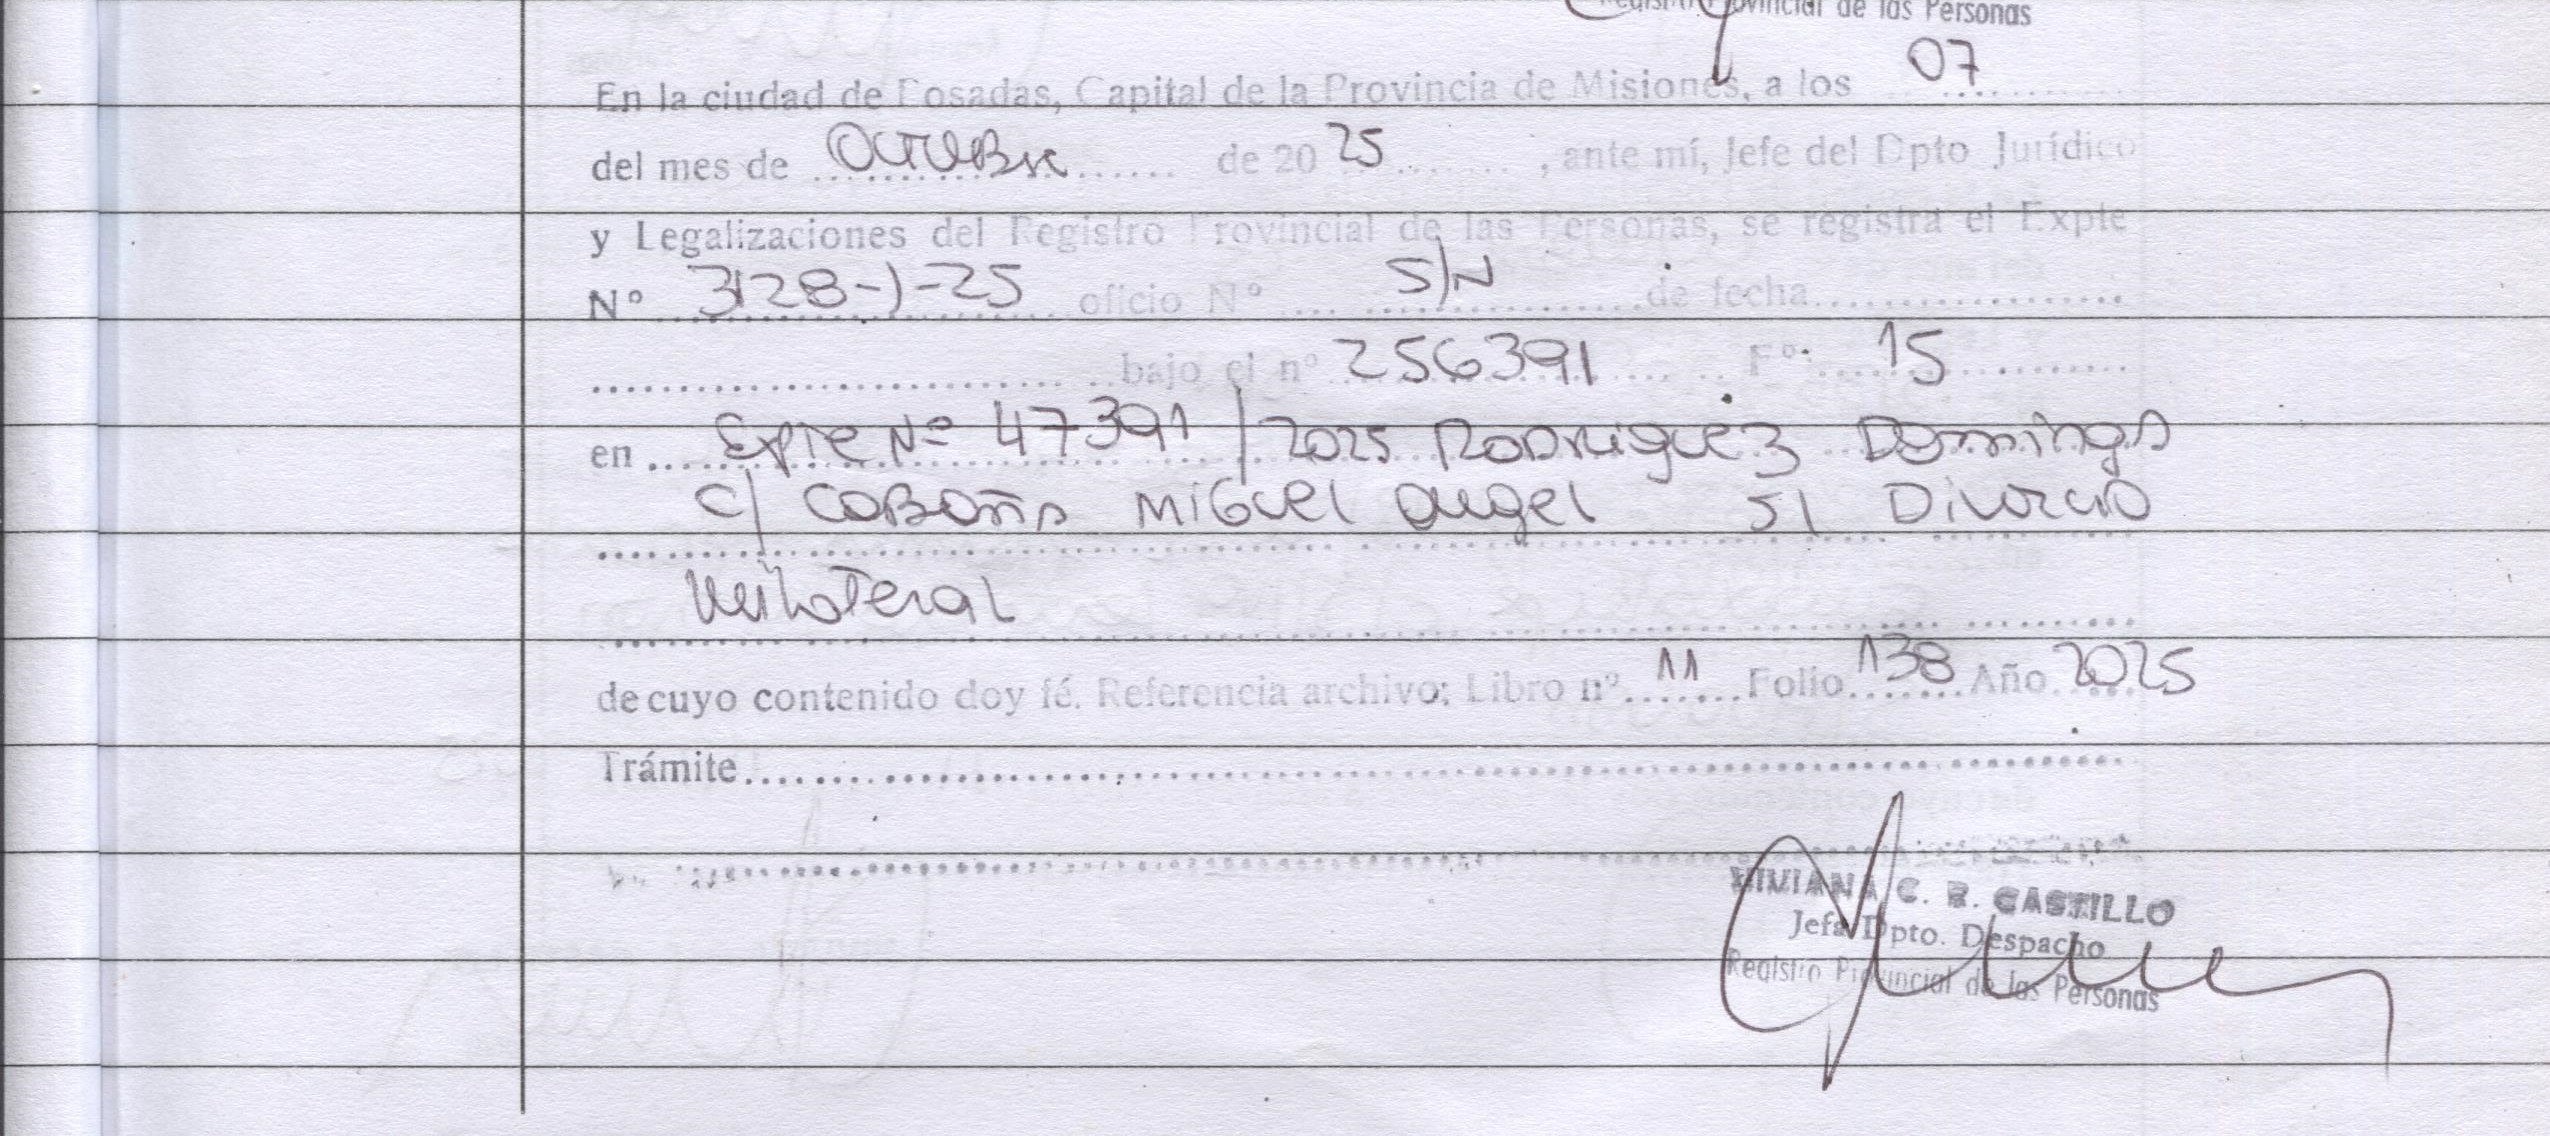 Registro Provincial de las Personas
En la ciudad de Posadas, Capital de la Provincia de Misiones, a los 07
del mes de Octubre de 20 25, ante mí, Jefe del Dpto Jurídico
y Legalizaciones del Registro Provincial de las Personas, se registra el Expte
Nº 3128-J-25 oficio Nº S/N de fecha
bajo el nº 256391 Fº: 15
en Expte Nº 47391/2025 Rodriguez Domingo
c/ Miguel Angel s/ Divorcio
Unilateral
de cuyo contenido doy fé. Referencia archivo: Libro nº 11 Folio 138 Año 2025
Trámite
VIVIANA C. R. CASTILLO
Jefa Dpto. Despacho
Registro Provincial de las Personas